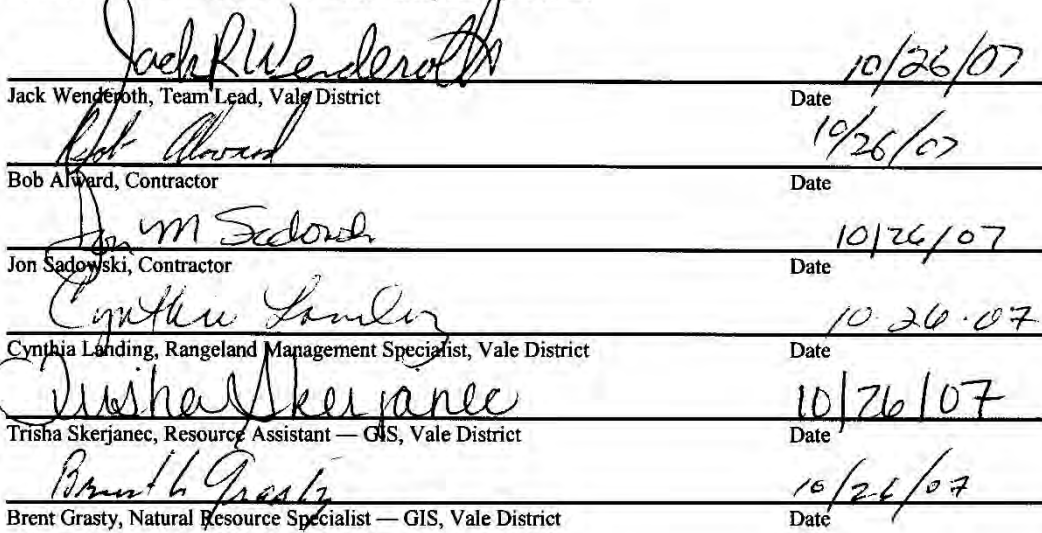 Jack R Wenderoth 10/26/07
Jack Wenderoth, Team Lead, Vale District Date
Bob Alward 10/26/07
Bob Alward, Contractor Date
Jon M Sadowski 10/26/07
Jon Sadowski, Contractor Date
Cynthia Landing 10.26.07
Cynthia Landing, Rangeland Management Specialist, Vale District Date
Trisha Skerjanec 10/26/07
Trisha Skerjanec, Resource Assistant — GIS, Vale District Date
Brent L Grasty 10/26/07
Brent Grasty, Natural Resource Specialist — GIS, Vale District Date